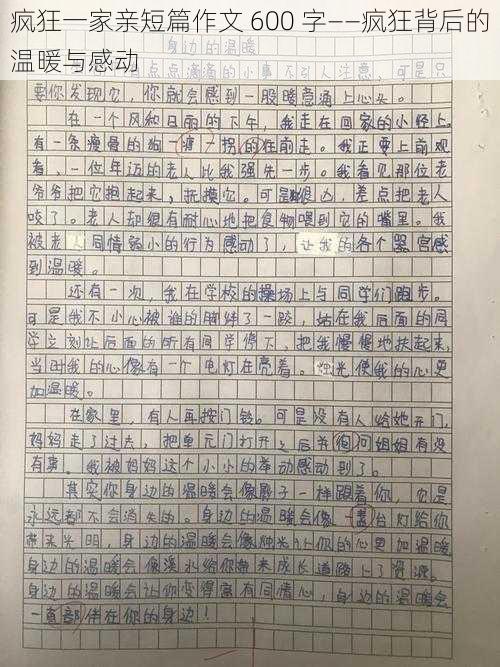 疯狂一家亲短篇作文 600 字——疯狂背后的
温暖与感动
身边的温暖
点点点滴的小事不引人注意，可是只
要你发现它，你就会感到一股暖意涌上心头。
在一个风和日丽的下午，我走在回家的小径上。
有一条瘦骨的狗一瘸一拐的在前走。我正要上前观
看，一位年迈的老人比我强先一步。我看见那位老
爷爷把它抱起来，抚摸它。可是很凶，差点把老人
咬了。老人却很有耐心地把食物喂到它的嘴里。我
被老人同情弱小的行为感动了，让我的各个器官感
到温暖。
还有一次，我在学校的操场上与同学们跑步。
可是我不小心被谁的脚绊了一跤，站在我后面的同
学立刻让后面的所有同学停下，把我慢慢地扶起来，
当时我的心像有一个电灯在亮着。烛光使我的心更
加温暖。
在家里，有人再按门铃。可是没有人给她开门，
妈妈走了过去，把单元门打开之后并询问姐姐有没
有事。我被妈妈这个小小的举动感动到了。
其实你身边的温暖会像影子一样跟着你，它是
永远都不会消失的。身边的温暖会像一盏台灯给你
带来光明，身边的温暖会像烛光让你的心更加温暖
身边的温暖会像溪水给你带来成长道路上了资源。
身边的温暖会让你变得富有同情心，身边的温暖会
一直部伴在你的身边！